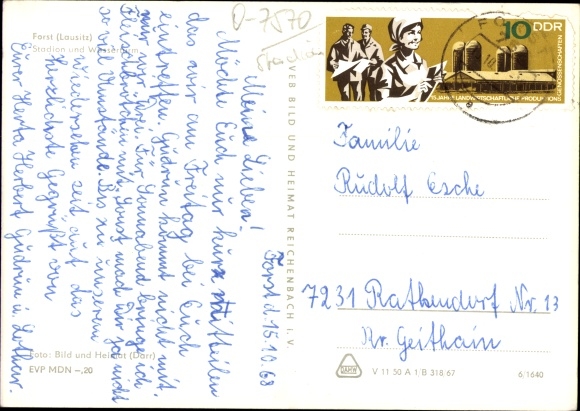 Forst (Lausitz)
Stadion und Wasserturm
D-7570
Forst d. 15.10.68
Meine Lieben!
Möchte Euch nur kurz mitteilen
das wir am Freitag bei Euch
eintreffen, Gudrun kommt nicht mit,
nur wir drei. Für Sonnabend bringe ich
Fleisch mit, Sonst mach Dir ja nicht
so viel Umstände. Bis zu unserem
Wiedersehen seit auf das
herzlichste Gegrüßt von
Eurer Herta Herbert Gudrun u. Lothar.
Foto: Bild und Heimat (Darr)
EVP MDN –,20
VEB BILD UND HEIMAT REICHENBACH I. V.
10 DDR
15 JAHRE LANDWIRTSCHAFTLICHE PRODUKTIONS
GENOSSENSCHAFTEN
Familie
Rudolf Esche
7231 Rathendorf Nr. 13
Kr. Geithain
V 11 50 A 1 B 318/67
6/1640